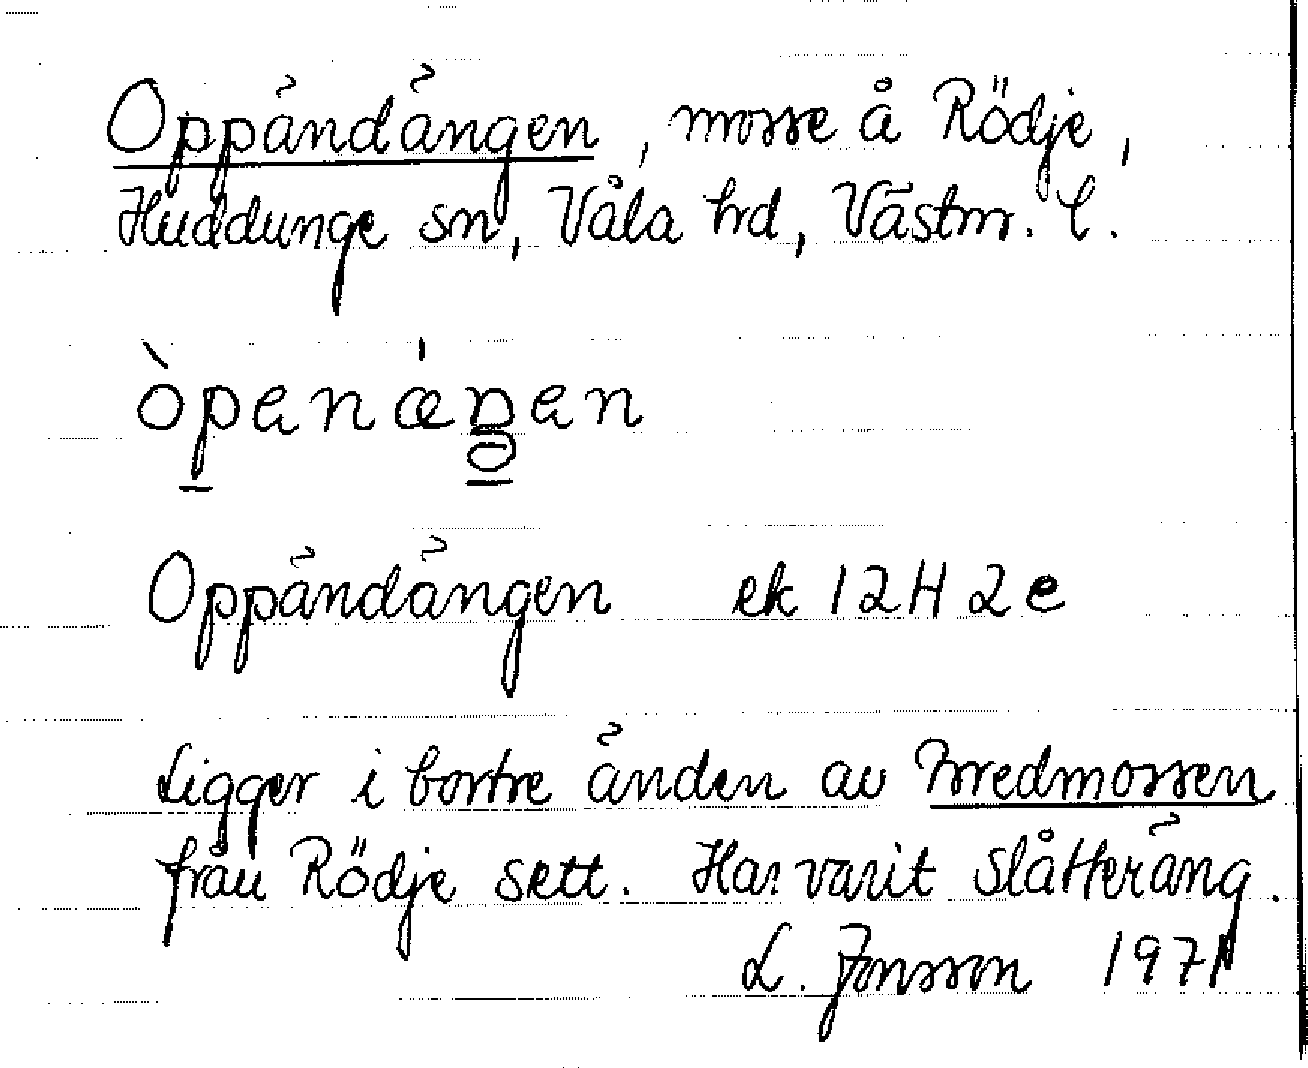 Oppändängen, mosse å Rödje,
Huddunge sn, Våla hd, Västm. l.
òpenáŋen
Oppändängen ek 12H2e
Ligger i bortre änden av Bredmossen
från Rödje sett. Har varit slåtteräng.
L. Jonsson 1971